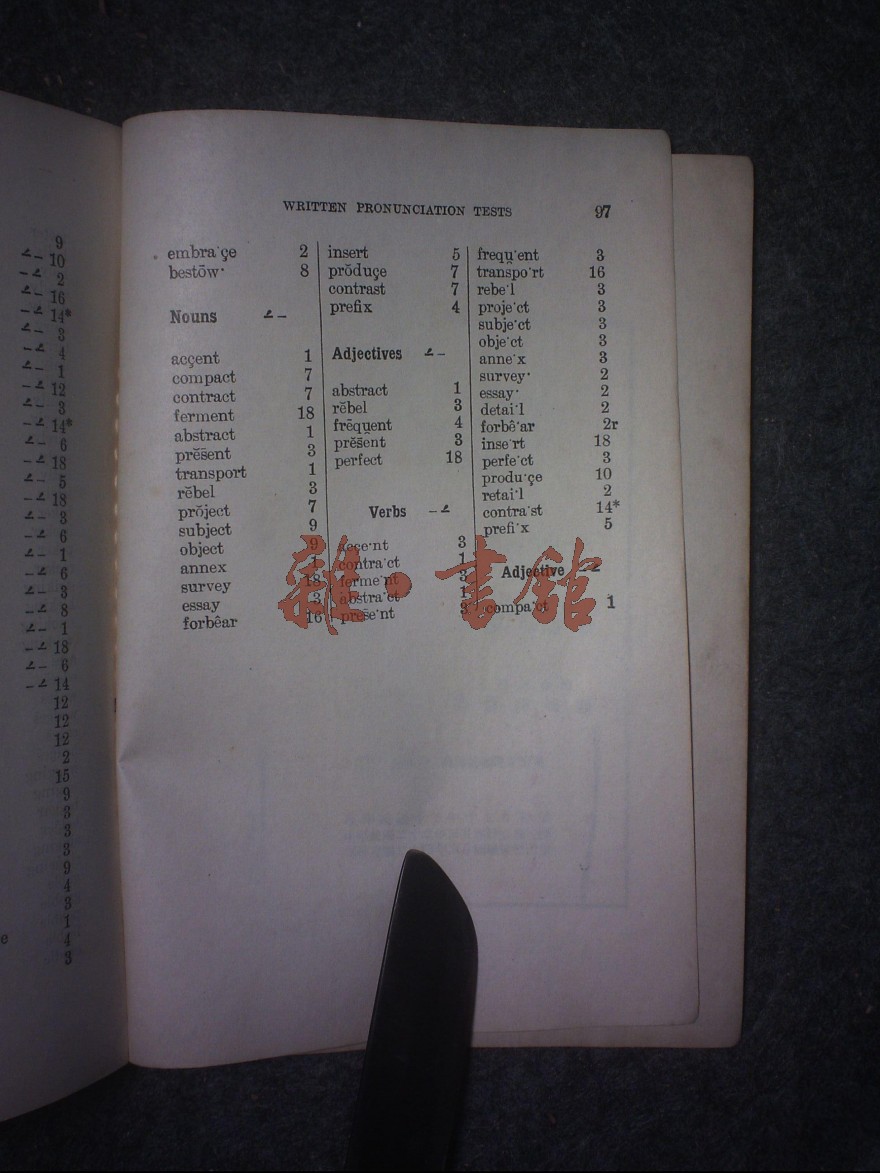 WRITTEN PRONUNCIATION TESTS 97
embra·çe 2
bestōw· 8
Nouns ∠ –
acçent 1
compact 7
contract 7
ferment 18
abstract 1
prĕs̄ent 3
transport 1
rĕbel 3
prŏject 7
subject 9
object 9
annex 1
survey 18
essay 3
forbêar 16
insert 5
prŏduçe 7
contrast 7
prefix 4
Adjectives ∠ –
abstract 1
rĕbel 3
frēqu̯ent 4
prĕs̄ent 3
perfect 18
Verbs – ∠
acçe·nt 3
contra·ct 1
ferme·nt 3
abstra·ct 1
pres̄e·nt 3
frequ̯·ent 3
transpo·rt 16
rebe·l 3
proje·ct 3
subje·ct 3
obje·ct 3
anne·x 3
survey· 2
essay· 2
detai·l 2
forbê·ar 2r
inse·rt 18
perfe·ct 3
produ·çe 10
retai·l 2
contra·st 14*
prefi·x 5
Adjective – ∠
compa·ct 1
雜·書館
9
∠ – 10
– ∠ 2
∠ – 16
– ∠ 14*
∠ – 3
– ∠ 4
∠ – 1
– ∠ 12
∠ – 3
– ∠ 14*
∠ – 6
– ∠ 18
∠ – 5
– ∠ 18
∠ – 3
– ∠ 6
∠ – 1
– ∠ 6
∠ – 3
– ∠ 8
∠ – 1
– ∠ 18
∠ – 6
– ∠ 14
12
12
12
2
15
9
3
3
3
9
4
3
1
e 4
3